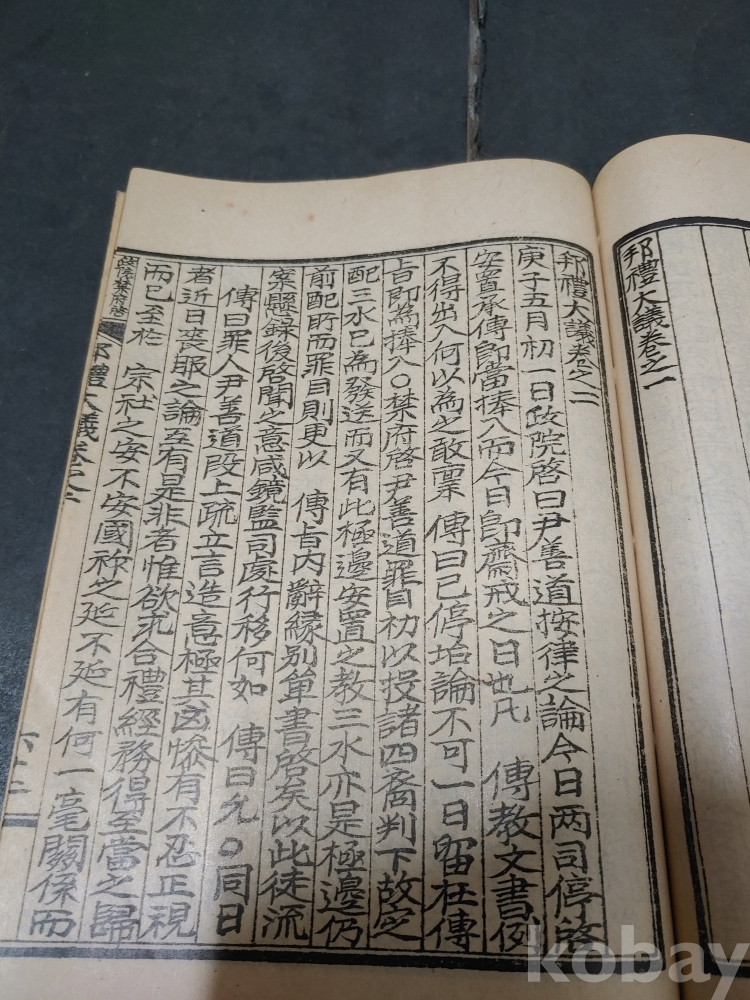 邦禮大議卷之一
邦禮大議卷之二
庚子五月初一日政院啓曰尹善道按律之論今日两司停啓
安置承傳即當捧入而今日即齋戒之日也凡 傳教文書例
不得出入何以為之敢禀 傳曰已停坮論不可一日留在傳
旨即為捧入○禁府啓尹善道罪目初以投諸四裔判下故定
配三水已為發送而又有此極邊安置之教三水亦是極邊仍
前配所而罪目則更以 傳旨內辭緣別單書啓矣以此徒流
案懸錄後啓聞之意咸鏡監司處行移何如 傳曰允○同日
傳曰罪人尹善道段上疏立言造意極其凶慘有不忍正視
者近日喪服之論互有是非者惟欲求合禮經務得至當之歸
而已至於 宗社之安不安國祚之延不延有何一毫關係而
政院禁府啓
邦禮大議卷之二
kobay